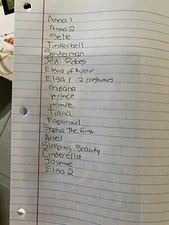 Anna 1
Anna 2
Belle
Tinkerbell
Spiderman
Jedi Robes
Elena of Avalor
Elsa 1 - 2 costumes
Moana
prince
prince
Tiana
Rapunzel
Sophia the first
Ariel
Sleeping Beauty
Cinderella
Jasmine
Elsa 2